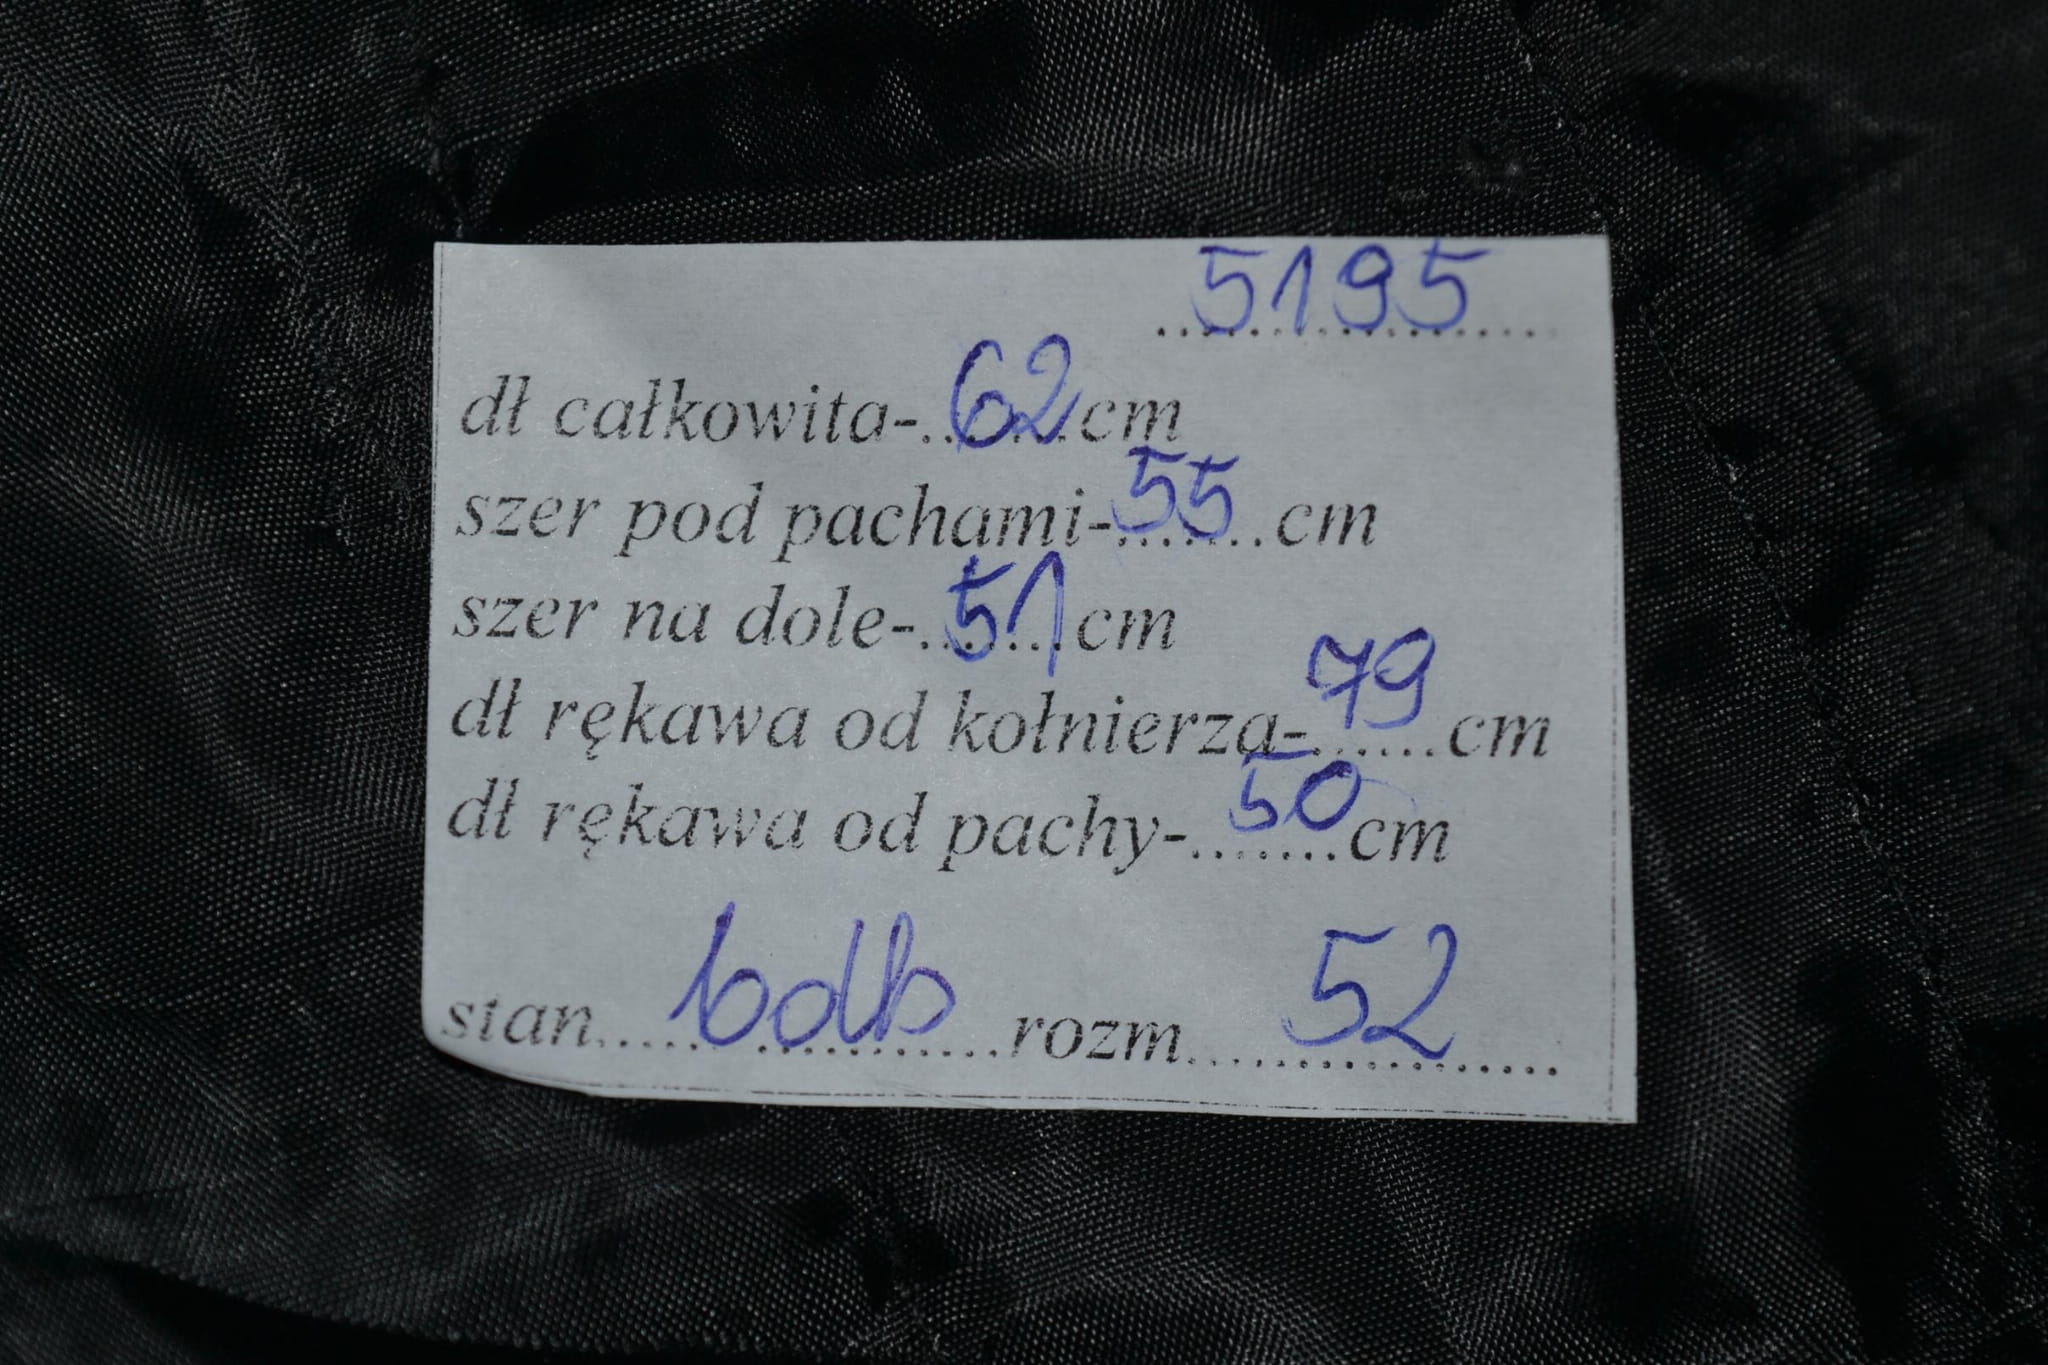 5195
dł całkowita-..62..cm
szer pod pachami-55......cm
szer na dole-..51..cm
dł rękawa od kołnierza-79......cm
dł rękawa od pachy-..50..cm
stan.....bdb...........rozm....52..........